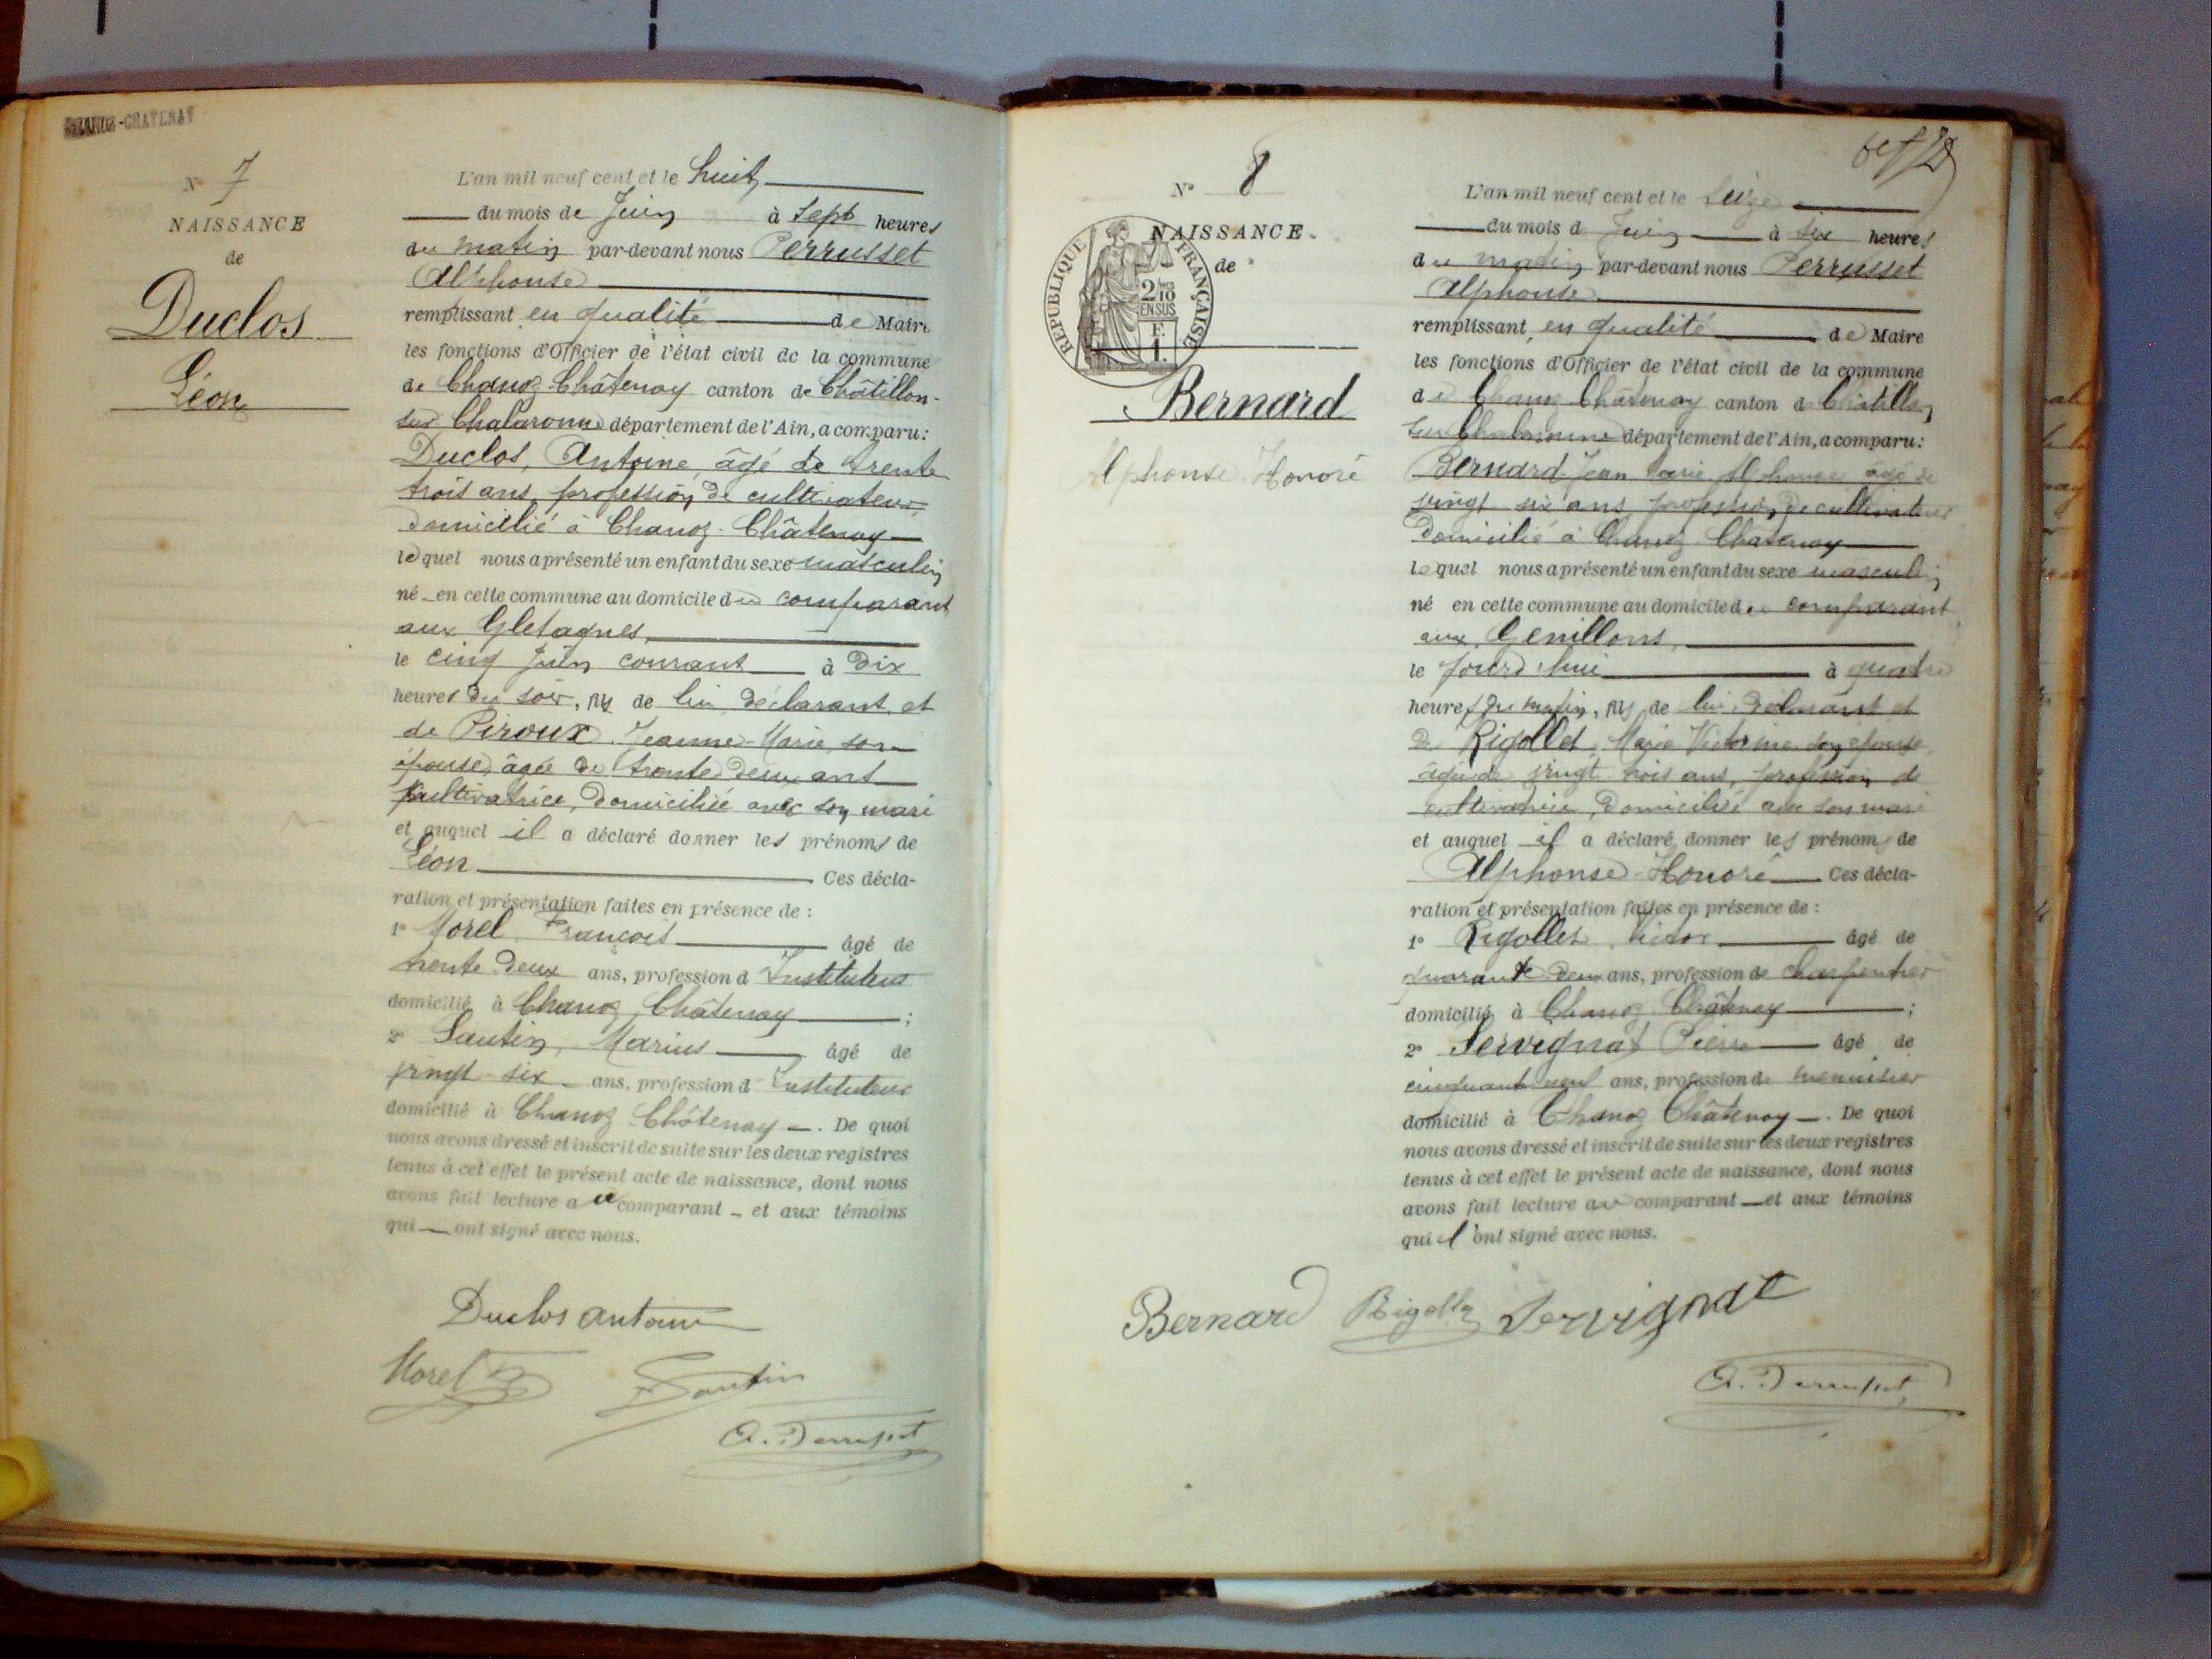 CHANOZ-CHATENAY
N° 7
NAISSANCE
de
Duclos
Léon
L'an mil neuf cent et le huit
du mois de Juin à sept heures
du matin par-devant nous Perrusset
Alphonse
remplissant en qualité de Maire
les fonctions d'Officier de l'état civil de la commune
de Chanoz-Châtenay canton de Châtillon-
sur Chalaronne département de l'Ain, a comparu :
Duclos, Antoine, âgé de trente
trois ans, profession de cultivateur
domicilié à Chanoz-Châtenay
lequel nous a présenté un enfant du sexe masculin
né en cette commune au domicile du comparant
aux Gletagnes,
le cinq Juin courant à dix
heures du soir, fils de lui déclarant et
de Piroux Jeanne-Marie, son
épouse, âgée de trente deux ans
cultivatrice, domiciliée avec son mari
et auquel il a déclaré donner les prénoms de
Léon Ces décla-
ration et présentation faites en présence de :
1° Morel François âgé de
trente deux ans, profession d'Instituteur
domicilié à Chanoz Châtenay ;
2° Sautin, Marius âgé de
vingt-six ans, profession d'Instituteur
domicilié à Chanoz Châtenay. De quoi
nous avons dressé et inscrit de suite sur les deux registres
tenus à cet effet le présent acte de naissance, dont nous
avons fait lecture au comparant et aux témoins
qui ont signé avec nous.
Duclos antoine
Morel
Sautin
A. Perrusset
N° 8
NAISSANCE
de
RÉPUBLIQUE FRANÇAISE
2/10
EN SUS
F.
1.
Bernard
Alphonse Honoré
L'an mil neuf cent et le seize
du mois d Juin à six heures
du matin par-devant nous Perrusset
Alphonse
remplissant en qualité de Maire
les fonctions d'Officier de l'état civil de la commune
de Chanoz Châtenay canton d Châtillon
sur Chalaronne département de l'Ain, a comparu :
Bernard Jean Marie Alphonse âgé de
vingt six ans profession de cultivateur
domicilié à Chanoz Châtenay
lequel nous a présenté un enfant du sexe masculin
né en cette commune au domicile du comparant
aux Genillons,
le jourd'hui à quatre
heures du matin, fils de lui déclarant et
de Rigollet Marie Victorine son épouse
âgée de vingt trois ans, profession de
cultivatrice, domiciliée avec son mari
et auquel il a déclaré donner les prénoms de
Alphonse-Honoré Ces décla-
ration et présentation faites en présence de :
1° Rigollet Victor âgé de
quarante deux ans, profession de charpentier
domicilié à Chanoz Châtenay ;
2° Servignat Pierre âgé de
cinquante neuf ans, profession de menuisier
domicilié à Chanoz Châtenay. De quoi
nous avons dressé et inscrit de suite sur les deux registres
tenus à cet effet le présent acte de naissance, dont nous
avons fait lecture au comparant et aux témoins
qui ont signé avec nous.
Bernard Rigollet Servignat
A. Perrusset